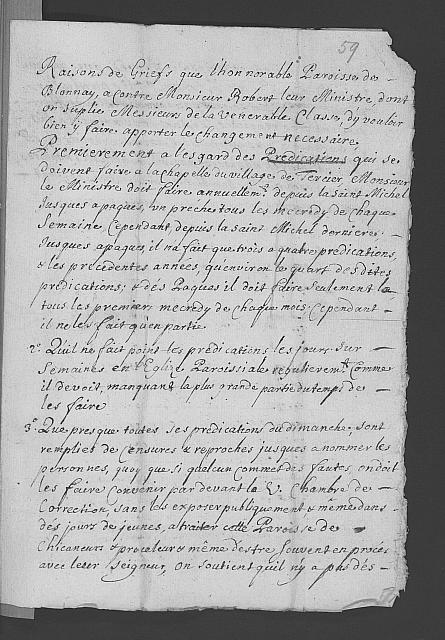 59
Raisons de Griefs que lhonnorable Paroisse de
Blonnay, a contre Monsieur Robert leur Ministre, dont
on suplie Messieurs de la venerable Classe, dy vouloir
bien y faire apporter le changement necessaire
Premierement a lesgard des Predications qui se
doivent faire a la chapelle du village de Tercier Monsieur
le Ministre doit faire annuellemt. depuis la saint Michel
Jusques a paques, un prêche tous les mecredy de chaque
Semaine Cependant depuis la saint Michel derniere
Jusques a paques, il na fait que trois a quatre predications,
& les precedentes années, qu'environ le quart des dites
predications; & dés Paques il doit faire seulement la
tous les premiers mecredy de chaque mois. Cependant
il ne les fait quen partie
2.° Quil ne fait point les predications les jours sur
Semaines en l'Eglise Paroissiale regulieremt. Comme
il devoit, manquant la plus grande partie du temps de
les faire
3.° Que presque toutes ses predications du dimanche, sont
remplies de Censures & reproches jusques a nommer les
personnes, quoy que si quelcun commet des fautes, on doit
les faire Convenir par devant la V. Chambre de
Correction, sans les exposer publiquement & même dans
des jours de jeunes, a traiter cette Paroisse de
Chicaneurs & procateur & même destre souvent en procés
avec leur Seigneur, on soutient quil ny a pas dés